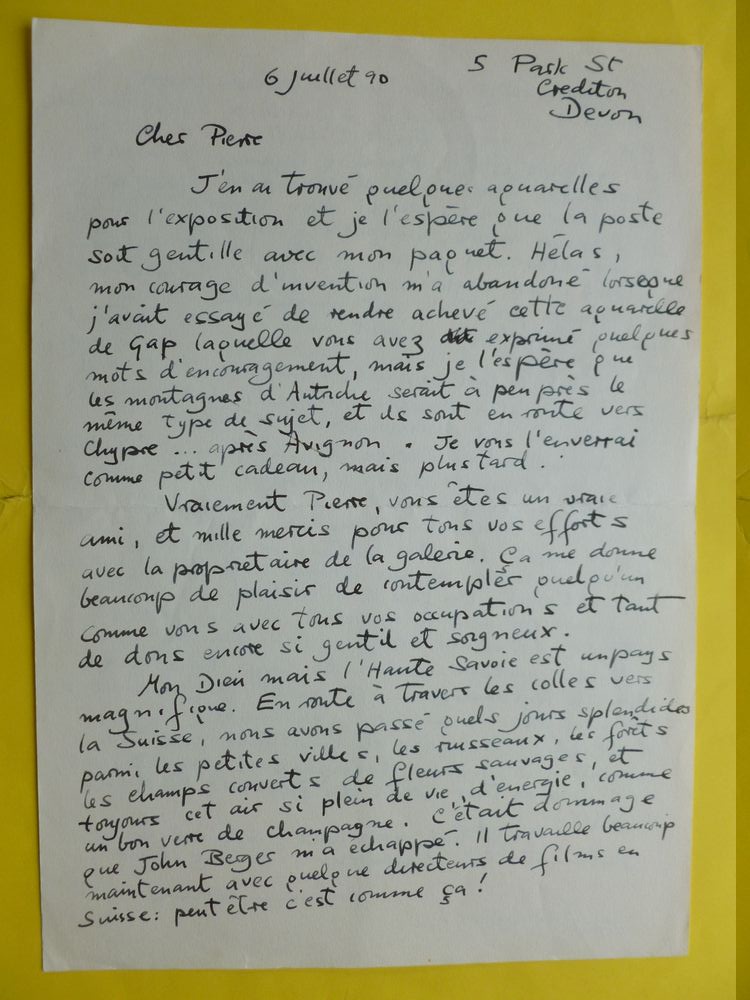 6 juillet 90
5 Park St
Crediton
Devon
Cher Pierre
J'en ai trouvé quelques aquarelles
pour l'exposition et je l'espère que la poste
soit gentille avec mon paquet. Hélas,
mon courage d'invention m'a abandoné lorseque
j'avait essayé de rendre achevé cette aquarelle
de Gap laquelle vous avez exprimé quelques
mots d'encouragement, mais je l'espère que
les montagnes d'Autriche serait à peu près le
même type de sujet, et ils sont en route vers
Chypre ... après Avignon. Je vous l'enverrai
comme petit cadeau, mais plus tard.
Vraiement Pierre, vous êtes un vraie
ami, et mille mercis pour tous vos efforts
avec la proprietaire de la galerie. Ça me donne
beaucoup de plaisir de contempler quelqu'un
comme vous avec tous vos occupations et tant
de dons encore si gentil et soigneux.
Mon Dieu mais l'Haute Savoie est un pays
magnifique. En route à travers les colles vers
la Suisse, nous avons passé quels jours splendides
parmi les petites villes, les ruisseaux, les forêts
les champs couverts de fleurs sauvages, et
toujours cet air si plein de vie, d'energie, comme
un bon verre de champagne. C'était dommage
que John Berger m'a echappé. Il travaille beaucoup
maintenant avec quelque directeurs de films en
Suisse: peut être c'est comme ça!